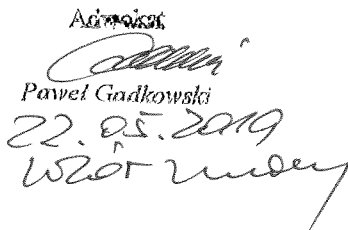 Adwokat
Paweł Gadkowski
22.05.2019
wzór umowy